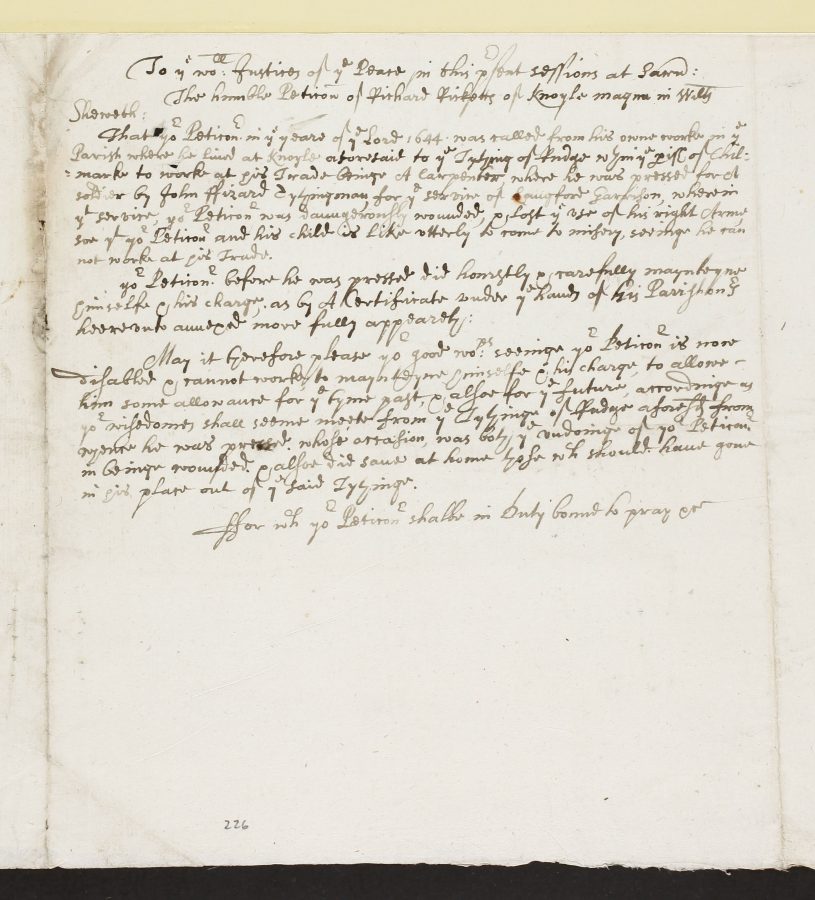 To yͤ woꝛ:ˡˡ Justices of yͤ Peace in this pʳsent sessions at Sarũ:
The humble Peticoñ of Richard Ricketts of Knoyle magna in Wiltꝭ
Sheweth:
That yoʳ Peticonʳ in yͤ yeare of yͤ Lord 1644 was called from his owne worke in yͤ
Parish where he lived at Knoyle aforesaid to yͤ Tythinge of Rudge wᵗhin yͤ pish of Chil-
=marke to worke at his Trade beinge A Carpenter, where he was pressed for A
soldier by John ffizard Tythingman, for yͤ service of Langford Garrison, wherein
yͤ service, yoʳ Peticonʳ was daungerously wounded, & lost yͤ use of his right Arme
soe yᵗ yoʳ Peticonʳ and his child is like utterly to come to misery, seeinge he can
not worke at his Trade.
yoʳ Peticonʳ before he was pressed did honestly & carefully maynteyne
himselfe & his charge, as by A Certificate under yͤ hands of his Parishonʳs
heereunto annexed more fully appeareth:
May it therefore please yoʳ good woʳᵖˢ seeinge yoʳ Peticonʳ is now
disabled & cannot worke to mayntayne himselfe & his charge, to allowe
him some allowance for yͤ tyme past, & alsoe for yͤ future, accordinge as
yoʳ wisedomes shall seeme meete from yͤ Tythinge of Rudge aforesᵈ from
whence he was pressed, whose occasion, was both yͤ undoinge of yoʳ Peticonʳ
in beinge wounded, & alsoe did save at home those wᶜh should have gone
in his place out of yͤ said Tythinge.
ffor wᶜh yoʳ Peticonʳ shalbe in Duty bound to pray &c
226